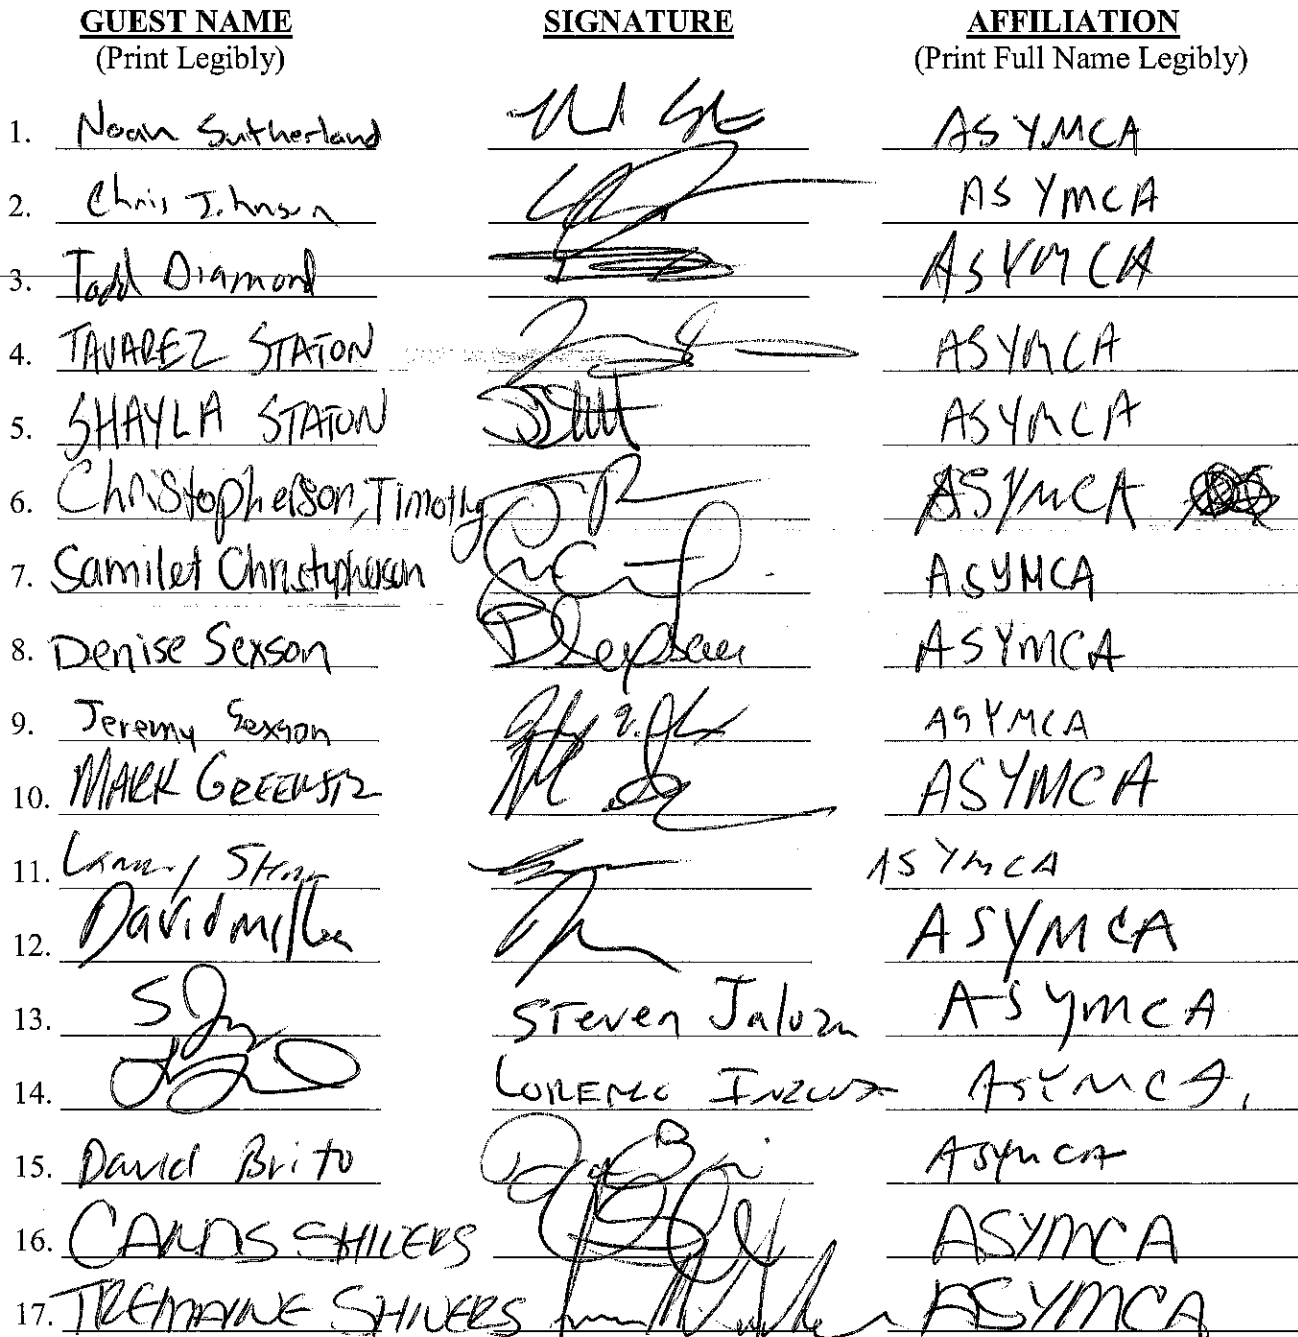 GUEST NAME SIGNATURE AFFILIATION
(Print Legibly) (Print Full Name Legibly)
1. Noah Sutherland ASYMCA
2. Chris Johnson ASYMCA
3. Todd Diamond ASYMCA
4. TAVAREZ STATON ASYMCA
5. SHAYLA STATON ASYMCA
6. Christopherson, Timothy ASYMCA
7. Samilet Christopherson ASYMCA
8. Denise Sexson DSexson ASYMCA
9. Jeremy Sexson ASYMCA
10. MARK ASYMCA
11. ASYMCA
12. David Miller ASYMCA
13. Steven ASYMCA
14. LORENZO ASYMCA
15. David Brito ASYMCA
16. SHIVERS ASYMCA
17. TREMAYNE SHIVERS ASYMCA